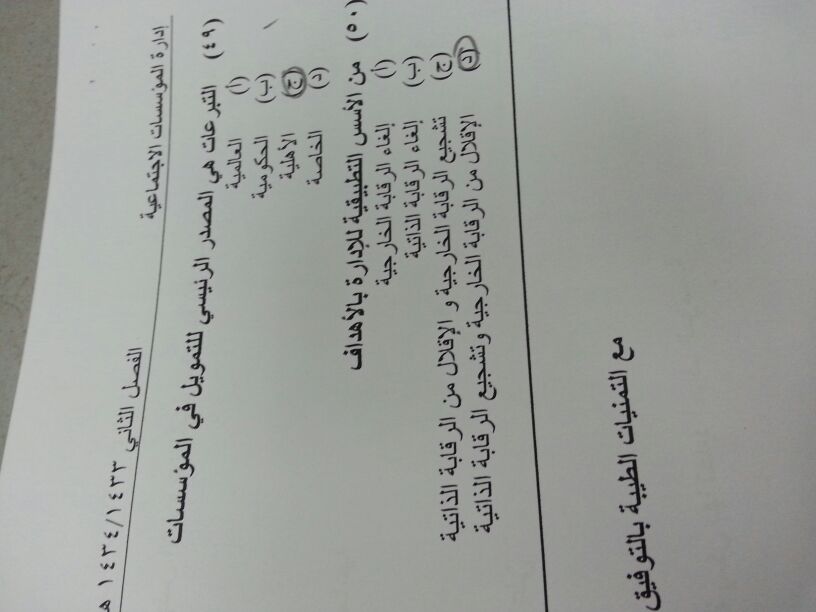 إدارة المؤسسات الاجتماعية
الفصل الثاني ١٤٣٤/١٤٣٣ هـ
(٤٩) التبرعات هي المصدر الرئيسي للتمويل في المؤسسات
(أ) العالمية
(ب) الحكومية
(ج) الأهلية
(د) الخاصة
(٥٠) من الأسس التطبيقية للإدارة بالأهداف
(أ) إلغاء الرقابة الخارجية
(ب) إلغاء الرقابة الذاتية
(ج) تشجيع الرقابة الخارجية و الإقلال من الرقابة الذاتية
(د) الإقلال من الرقابة الخارجية وتشجيع الرقابة الذاتية
مع التمنيات الطيبة بالتوفيق